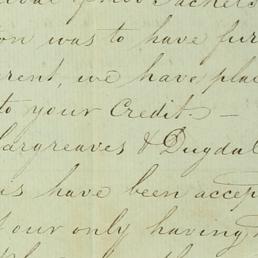 on was to have fur
rent, we have pla
to your Credit. —
argreaves & Dugdal
as have been accep
our only having